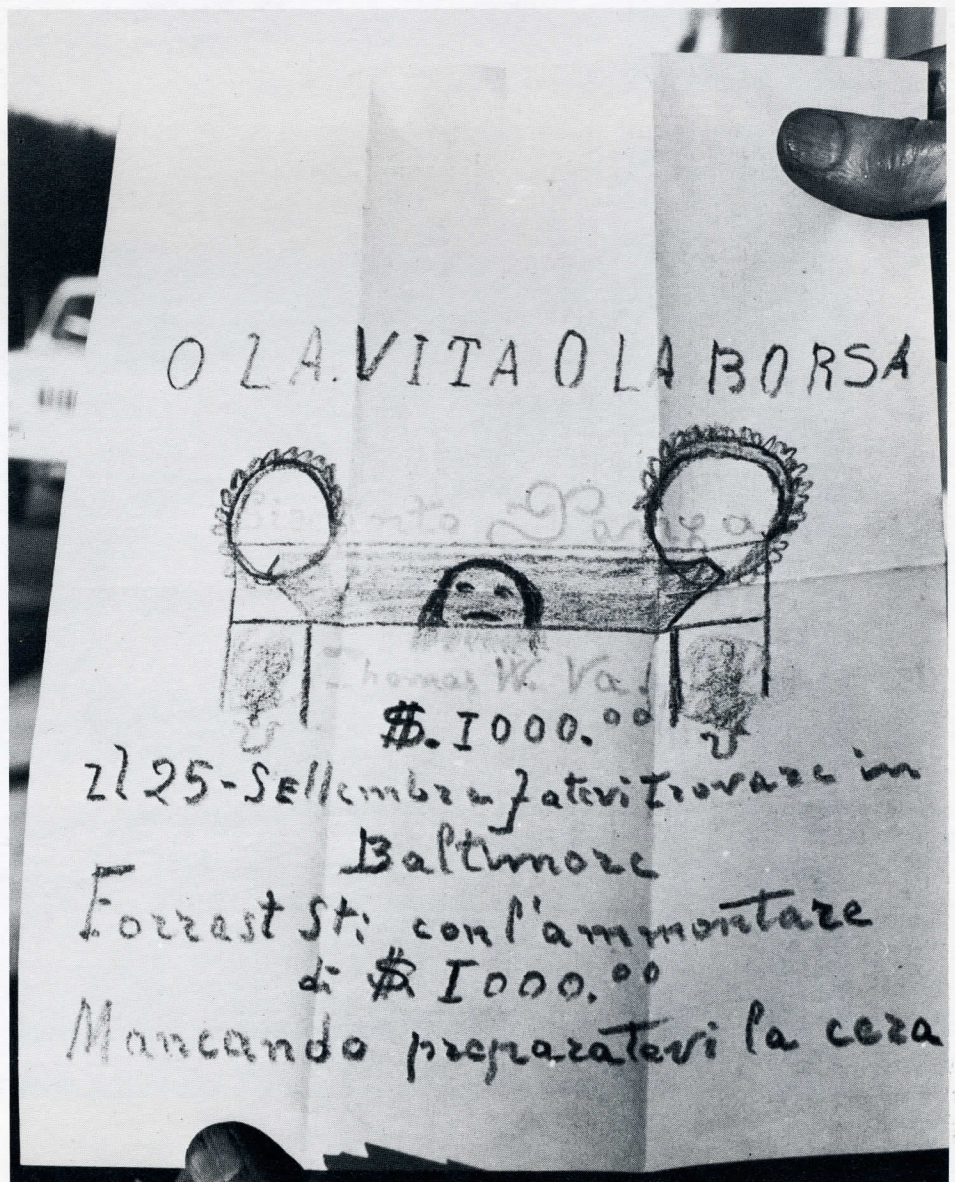 O LA.VITA O LA BORSA
Thomas W. Va.
$.1000.⁰⁰
Il 25-Settembre fatevi trovare in
Baltimore
Forrast St: con l'ammontare
di $ 1000.⁰⁰
Mancando preparatevi la cera